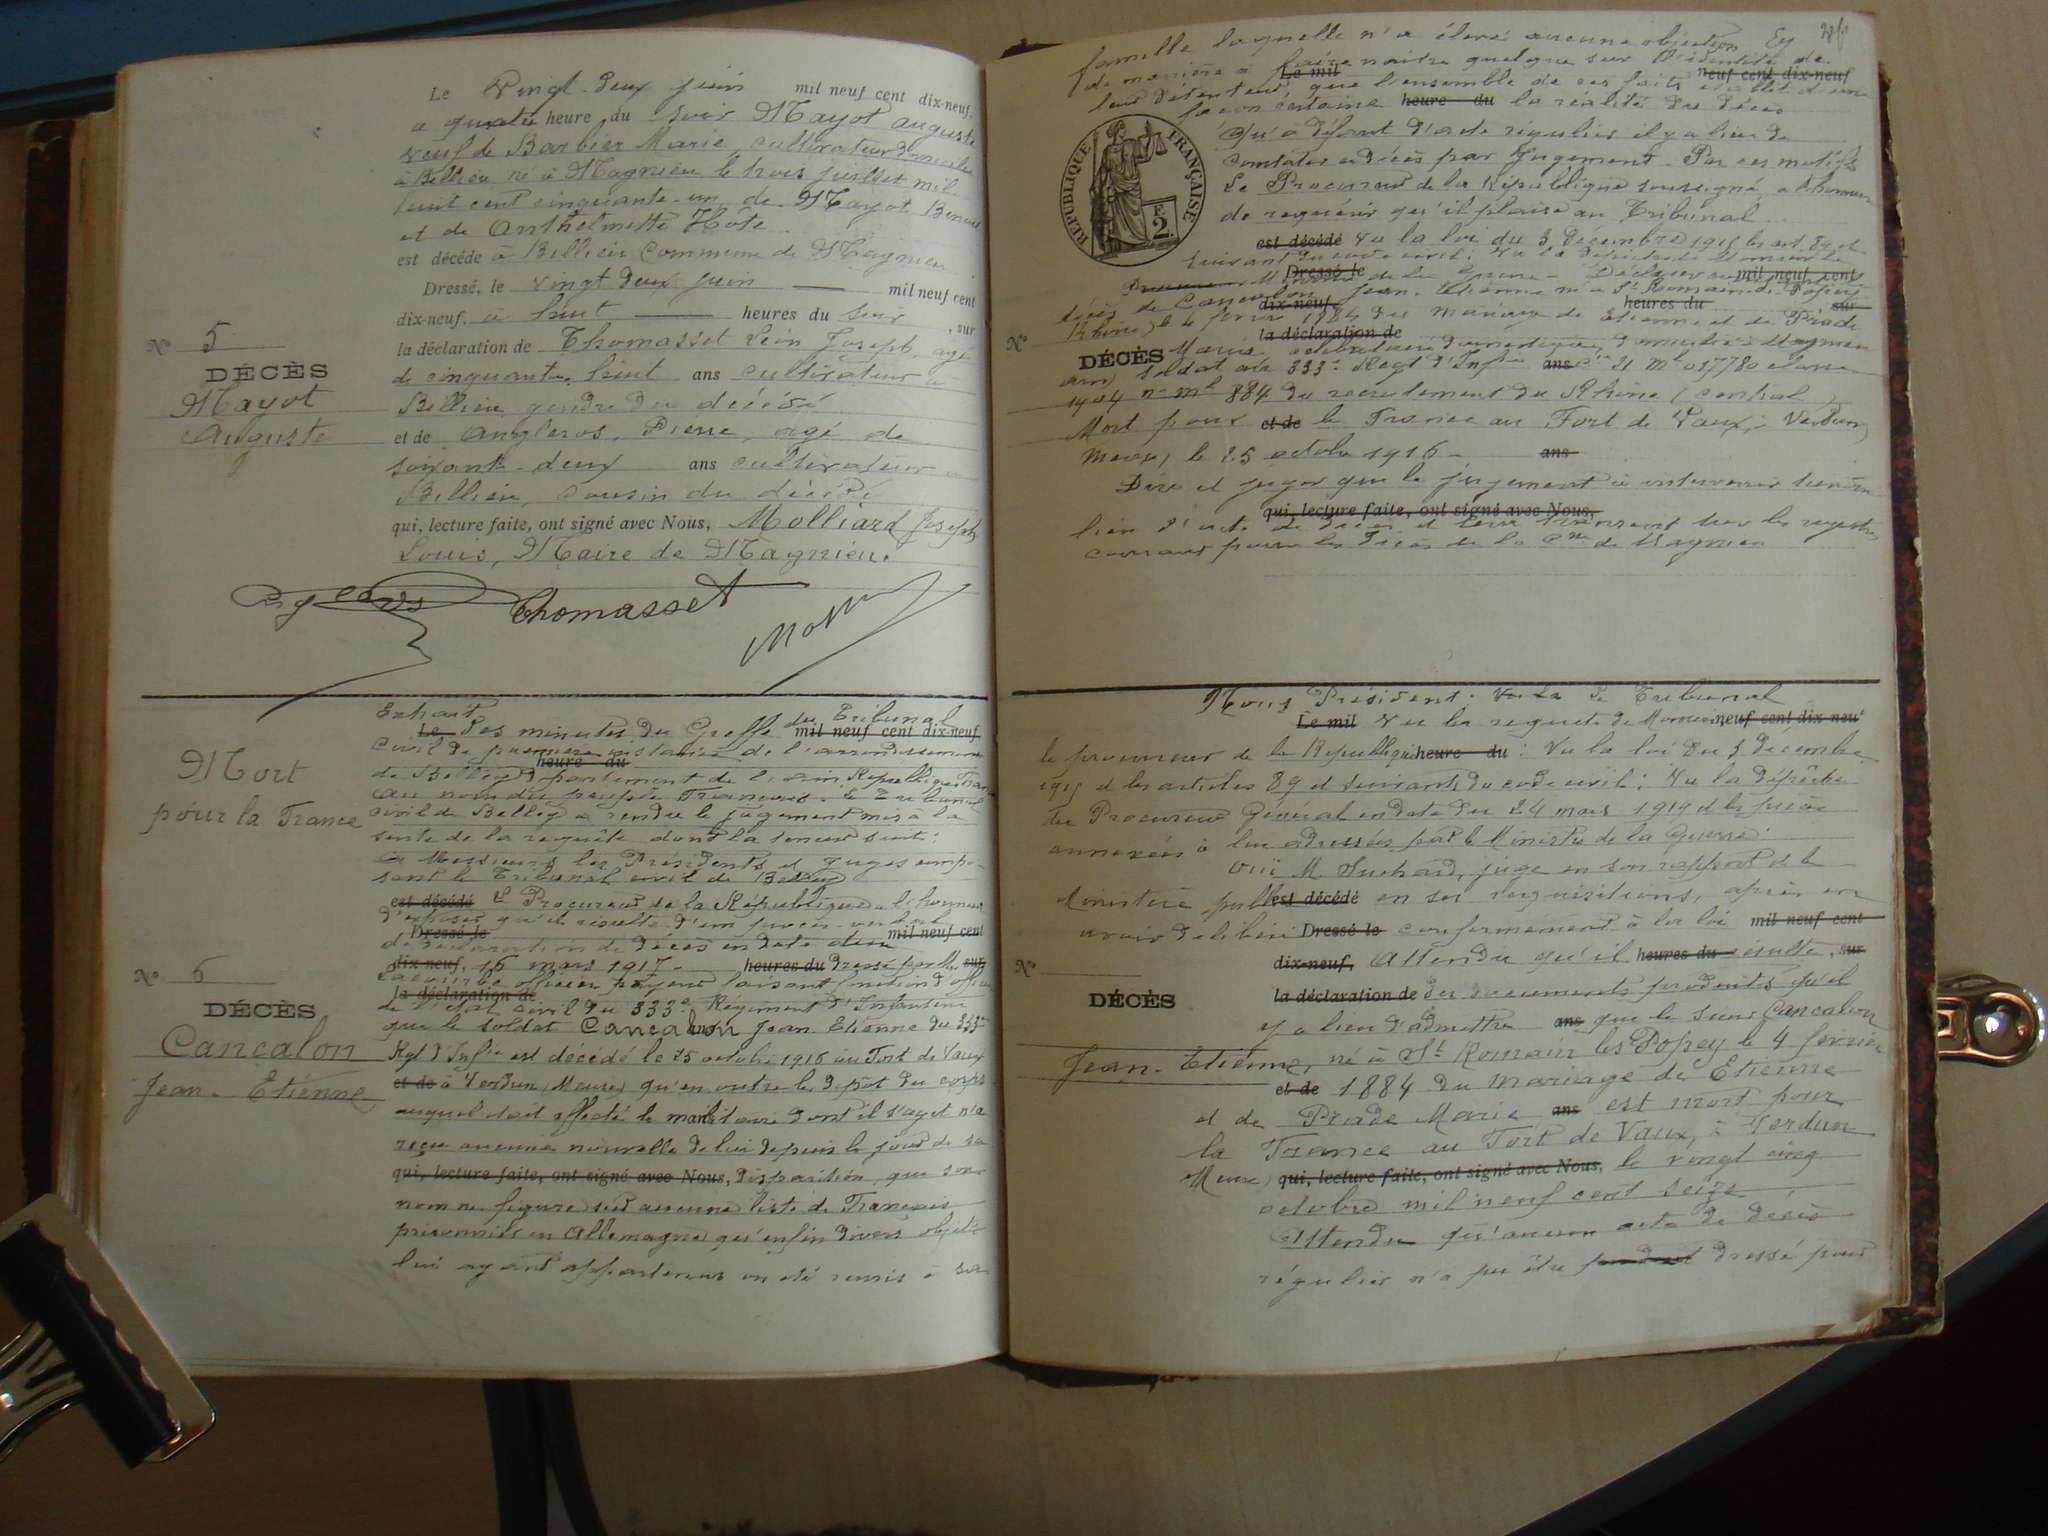 Le Vingt-deux juin mil neuf cent dix-neuf,
a quatre heure du soir Mayot auguste
veuf de Barbier Marie, cultivateur domicilié
à Billieu né à Magnieu le trois juillet mil
huit cent cinquante-un de Mayot Benoit
et de Anthelmette Hote
est décédé à Billieu Commune de Magnieu
Dressé, le vingt deux juin mil neuf cent
dix-neuf, à huit heures du soir, sur
la déclaration de Thomasset Léon Joseph, agé
de cinquante-huit ans cultivateur à
Billieu, gendre du décédé
et de Angleros, Pierre, agé de
soixante-deux ans cultivateur à
Billieu, cousin du décédé
qui, lecture faite, ont signé avec Nous, Molliard Joseph
Louis, Maire de Magnieu.
Thomasset
N° 5
DÉCÈS
Mayot
Auguste
Mort
pour la France
N° 6
DÉCÈS
Cancalon
Jean-Etienne
Extrait
Le des minutes du Greffe du Tribunal mil neuf cent dix-neuf,
civil de première instance de l'arrondissement
heure du
de Belley département de l'ain République Française
au nom du peuple Français. Le Tribunal
civil de Belley a rendu le jugement mis à la
suite de la requête dont la teneur suit:
A Messieurs les Présidents et Juges compo-
sant le Tribunal civil de Belley
est décédé Le Procureur de la République a l'honneur
d'exposer qu'il résulte d'un procès-verbal
Dressé le mil neuf cent
de déclaration de décès en date du
dix-neuf, 16 mars 1917 heures du dressé par M. sur
officier payeur faisant fonction d'officier
la déclaration de
de l'Etat civil du 333e Régiment d'Infanterie
que le soldat Cancalon Jean Etienne du 333e
Rgt d'Infie est décédé le 25 octobre 1916 au Fort de Vaux
et de à Verdun (Meuse) qu'en outre le dépôt du corps
auquel était affecté le militaire dont il s'agit n'a
reçu aucune nouvelle de lui depuis le jour de sa
qui, lecture faite, ont signé avec Nous, disparition, que son
nom ne figure sur aucune liste de Français
prisonniers en Allemagne qu'enfin divers objets
lui ayant appartenus on été remis à sa
famille laquelle n'a élevé aucune objection
de manière à faire naître quelque sur l'identité de
Le mil neuf cent dix-neuf
leur détenteur que l'ensemble de ces faits établit d'une
façon certaine heure du la réalité du décès
RÉPUBLIQUE FRANÇAISE
2
Qu'à défaut d'acte régulier il y a lieu de
constater ce décès par jugement. Par ces motifs
Le Procureur de la République soussigné, a l'honneur
de requérir qu'il plaise au Tribunal
est décédé Vu la loi du 3 décembre 1915 les art. 89 et
suivant du code civil:
Dressé le mil neuf cent
décès de Cancalon Jean-Etienne né à St Romain de Popey
dix-neuf, heures du sur
(Rhône) le 4 février 1884 du mariage de Etienne et de Prade
la déclaration de
N°
DÉCÈS
Marie célibataire domestique, domicilié à Magnieu
(ain) soldat au 333e Regt d'Infie ans Cie 21 Ml 017780 classe
1904 n° ml 884 du recrutement du Rhône (central)
Mort pour et de la France au Fort de Vaux, à Verdun
Meuse, le 25 octobre 1916 ans
Dire et juger que le jugement à intervenir tiendra
qui, lecture faite, ont signé avec Nous,
lieu d'acte de décès et sera transcrit sur les registres
courant pour les décès de la Cne de Magnieu
Nous Président: Le Tribunal
Le mil Vu la requête de Monsieur neuf cent dix-neuf
le procureur de la République heure du: Vu la loi du 3 décembre
1915 et les articles 89 et suivants du code civil: Vu la dépêche
du Procureur Général en date du 24 mars 1919 et les pièces
annexées à lui adressées par le Ministre de la Guerre:
Ouï M. Suchard, juge en son rapport et le
Ministère public est décédé en ses réquisitions, après en
avoir délibéré Dressé le conformément à la loi mil neuf cent
N°
dix-neuf, Attendu qu'il heures du résulte, sur
DÉCÈS
la déclaration de des documents produits qu'il
y a lieu d'admettre ans que le sieur Cancalon
Jean-Etienne, né à St Romain les Popey le 4 février
et de 1884 du mariage de Etienne
et de Prade Marie ans est mort pour
la France au Fort de Vaux, à Verdun
Meuse) qui, lecture faite, ont signé avec Nous, le vingt cinq
octobre mil neuf cent seize
Attendu qu'aucun acte de décès
régulier n'a pu être dressé pour